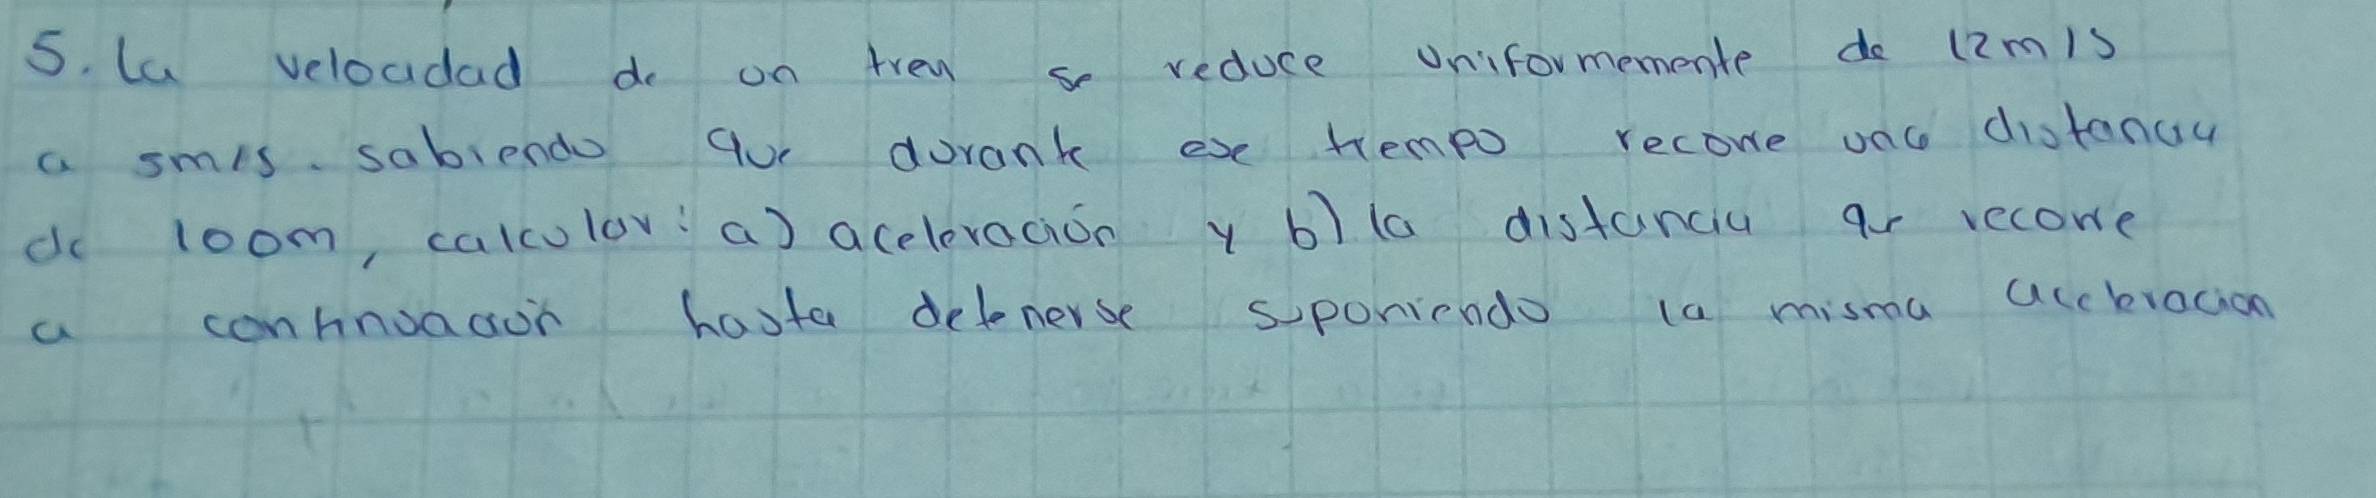 5. La velocidad de un tren se reduce uniformemente de 12m/s
a 5m/s. sabiendo que durante ese tiempo recorre una distancia
de 100m, calcular: a) aceleración y b) la distancia que recorre
a continuación hasta detenerse suponiendo la misma aceleracion